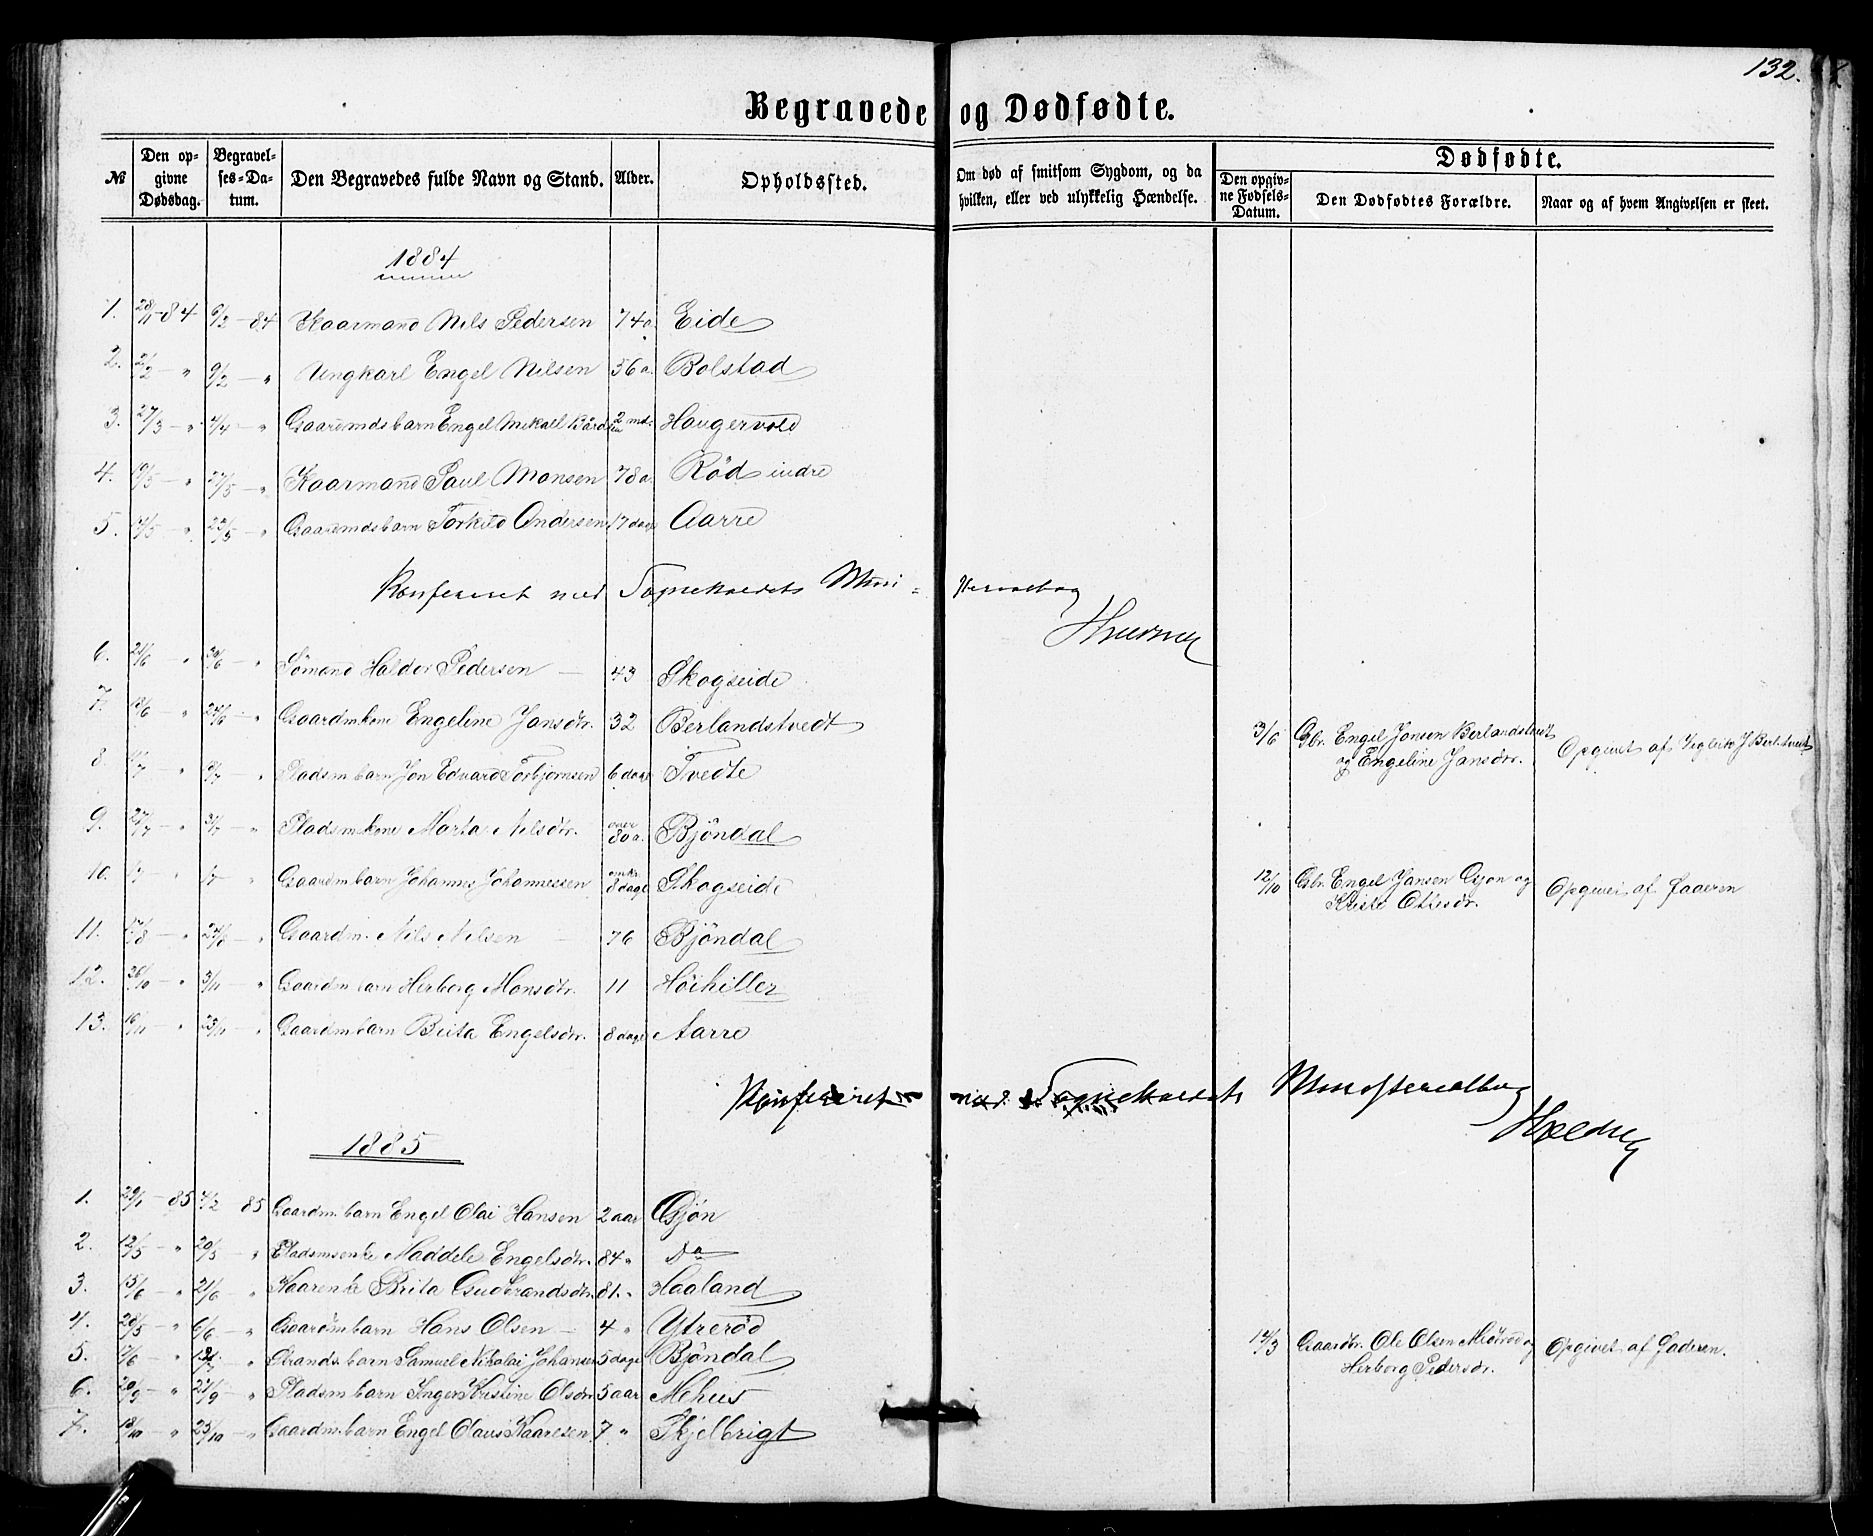 132.
Begravede og Dødfødte.
№ Den opgivne Dødsdag. Begravelses-Datum. Den Begravedes fulde Navn og Stand. Alder. Opholdssted. Om død af smitsom Sygdom, og da hvilken, eller ved ulykkelig Hændelse. Dødfødte. Den opgivne Fødsels-Datum. Den Dødfødtes Forældre. Naar og af hvem Angivelsen er skeet.
1884
1. 28/1 - 84 6/2 - 84 Kaarmand Nils Pedersen 74 a. Eide
2. 2/2 - " 9/2 - " Ungkarl Engel Nilsen 56 a. Bolstad
3. 27/3 - " 4/4 - " Gaardmdsbarn Engel Mikael Bård 2 md. Haugervold
4. 19/5 - " 27/5 - " Kaarmand Paul Monsen 78 a. Röd indre
5. 22/5 - " Gaardmdsbarn Torkild Andersen 17 dage Aarre
Konfereret med Sognekaldets Mini=sterialbog
6. 21/6 " 30/6 - " Sömand Haldor Pedersen - 43 Skogseide
7. 18/6 - " 24/6 - " Gaardmkone Engeline Jansdtr. 32 Berlandstvedt 3/6 Gbr. Engel Jansen Berlandstvedt og Engeline Jansdtr. Opgivet af
8. Pladsm barn Jon Edvard Torbjörnsen 6 dage Tvedte
9. 27/7 - " 31/7 - " Pladsmkone Marta Nilsdtr. over 80 a. Bjöndal
10. Gaardmbarn Johannes Johannessen omkr. 8 dage Skogseide 12/10 Gbr. Engel Jansen Gjön og Kristi Ottesdr. Opgivet af Faderen
11. 17/8 - " 24/8 - " Gaardm. Nils Nilsen - 76 Bjöndal
12. 26/10 - " 3/11 - " Gaardm barn Herborg Monsdtr. 11 Höihiller
13. 16/11 " 23/11 - " Gaardmbarn Brita Engelsdtr. 8 dage Aarre
Konfereret med Sognekaldets Ministerialbog
1885
1. 29/1 - 85 4/2 85 Gaardm. barn Engel Olai Hansen 2 aar Gjön
2. 12/5 " 20/5 - " Pladsmenke Maddele Engelsdtr. 84 " Do
3. 15/6 " 21/6 - " Kaarenke Brita Gudbrandsdtr. 81. " Haaland
4. 28/5 - " 6/6 - " Gaardmbarn Hans Olsen - 4 " Ytreröd 14/3 Gaardbr. Ole Olsen Midtröd og Herborg Pedersdr. Opgivet af Faderen.
5. Strands. barn Samuel Nikolai Johansen 5 dage Bjöndal
6. 20/9 - " 27/9 - " Pladsm barn Inger Kristine Olsdtr 5 aar Mehus
7. 18/10 - " 25/10 - " Gaardm. barn Engel Olaus Kaaresen 7 " Skjelbrigt